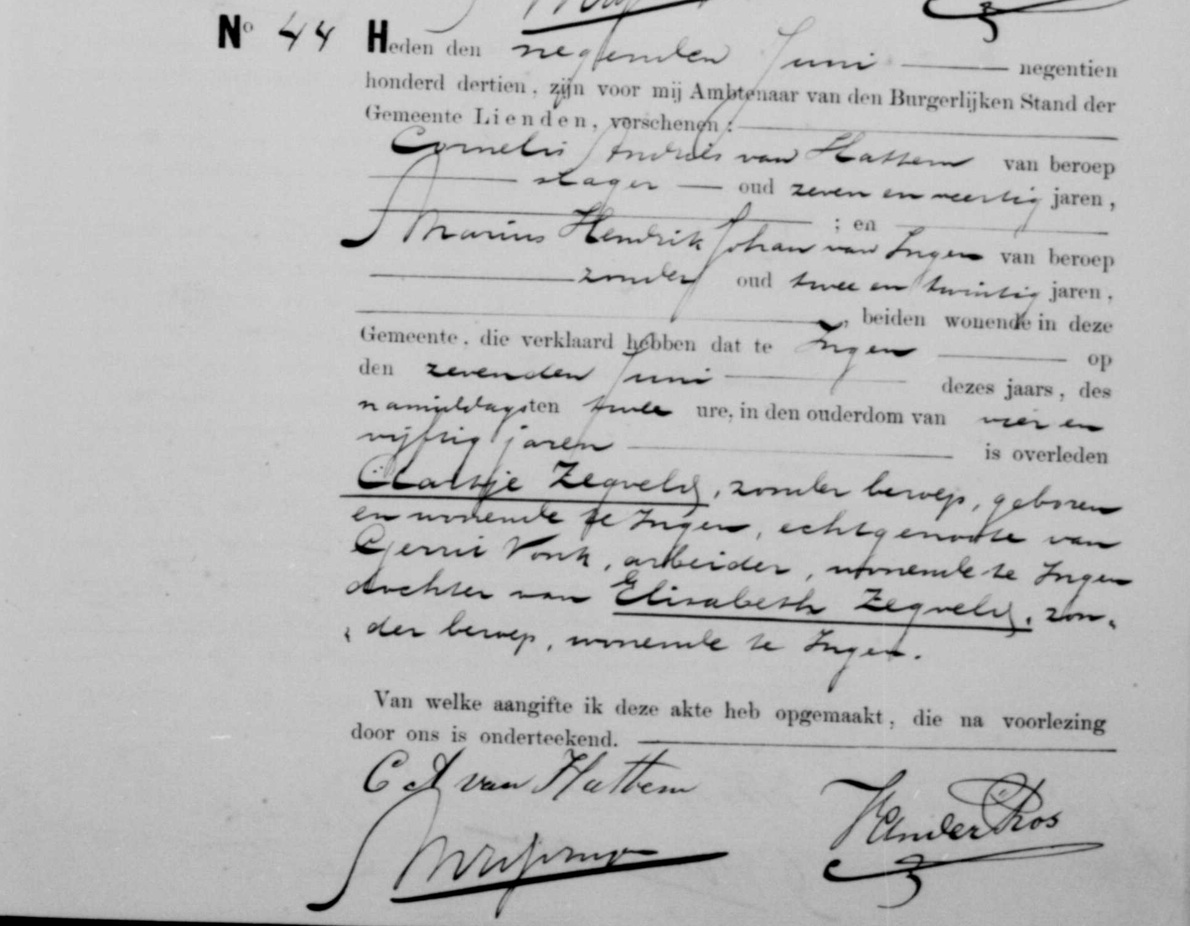 No 44 Heden den negenden Juni negentien
honderd dertien, zijn voor mij Ambtenaar van den Burgerlijken Stand der
Gemeente Lienden, verschenen:
Cornelis Andries van Hattem van beroep
slager oud zeven en veertig jaren,
; en
Marius Hendrik Johan van Ingen van beroep
zonder oud twee en twintig jaren,
, beiden wonende in deze
Gemeente, die verklaard hebben dat te Ingen op
den zevenden Juni dezes jaars, des
namiddagsten twee ure, in den ouderdom van vier en
vijftig jaren is overleden
Claasje Zegveld, zonder beroep, geboren
en wonende te Ingen, echtgenoote van
Gerrit Vonk, arbeider, wonende te Ingen
dochter van Elisabeth Zegveld, zon-
der beroep, wonende te Ingen.
Van welke aangifte ik deze akte heb opgemaakt, die na voorlezing
door ons is onderteekend.
C A van Hattem